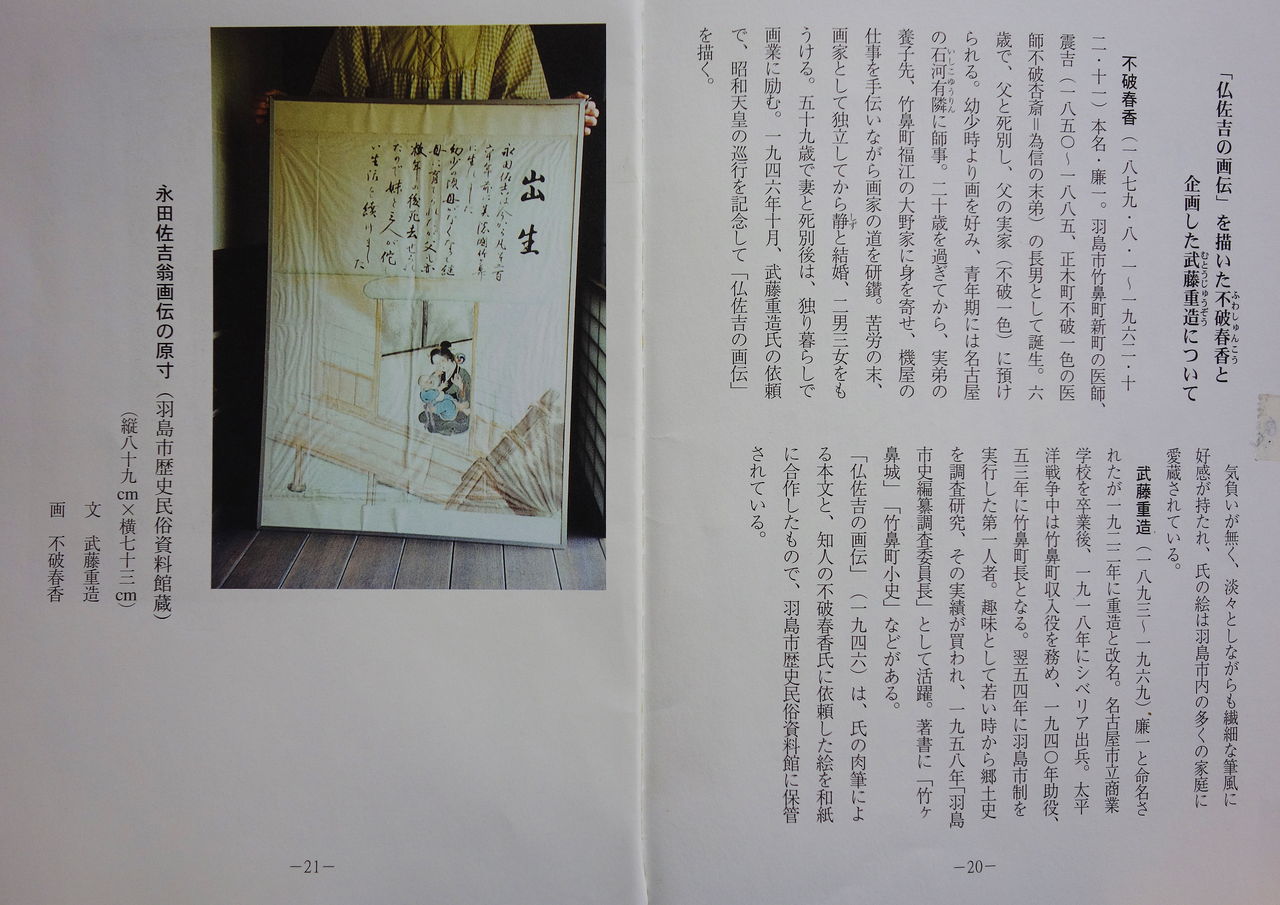 「仏佐吉の画伝」を描いた不破春香と
ふわしゅんこう
企画した武藤重造について
むとうじゅうぞう
不破春香（一八七九・八・一～一九六二・十
二・十一）本名・廉一。羽島市竹鼻町新町の医師、
震吉（一八五〇～一八八五、正木町不破一色の医
師不破杏斎＝為信の末弟）の長男として誕生。六
歳で、父と死別し、父の実家（不破一色）に預け
られる。幼少時より画を好み、青年期には名古屋
の石河有隣に師事。二十歳を過ぎてから、実弟の
いしこゆうりん
養子先、竹鼻町福江の大野家に身を寄せ、機屋の
仕事を手伝いながら画家の道を研鑽。苦労の末、
画家として独立してから静と結婚、二男三女をも
しず
うける。五十九歳で妻と死別後は、独り暮らしで
画業に励む。一九四六年十月、武藤重造氏の依頼
で、昭和天皇の巡行を記念して「仏佐吉の画伝」
を描く。
気負いが無く、淡々としながらも繊細な筆風に
好感が持たれ、氏の絵は羽島市内の多くの家庭に
愛蔵されている。
武藤重造（一八九三～一九六九）廉一と命名さ
れたが一九二二年に重造と改名。名古屋市立商業
学校を卒業後、一九一八年にシベリア出兵。太平
洋戦争中は竹鼻町収入役を務め、一九四〇年助役、
五三年に竹鼻町長となる。翌五四年に羽島市制を
実行した第一人者。趣味として若い時から郷土史
を調査研究、その実績が買われ、一九五八年「羽島
市史編纂調査委員長」として活躍。著書に「竹ヶ
鼻城」「竹鼻町小史」などがある。
「仏佐吉の画伝」（一九四六）は、氏の肉筆によ
る本文と、知人の不破春香氏に依頼した絵を和紙
に合作したもので、羽島市歴史民俗資料館に保管
されている。
―20―
出生
永田佐吉は今から凡そ二百
六十年前に美濃国竹ヶ鼻
に生れました
幼少の頃母がなくなり継
母に育てられたが父も亦
数年の後死去せら
たので妹と三人が侘し
い生活を続けまし
た
永田佐吉翁画伝の原寸（羽島市歴史民俗資料館蔵）
（縦八十九cm×横七十三cm）
文　武藤重造
画　不破春香
―21―